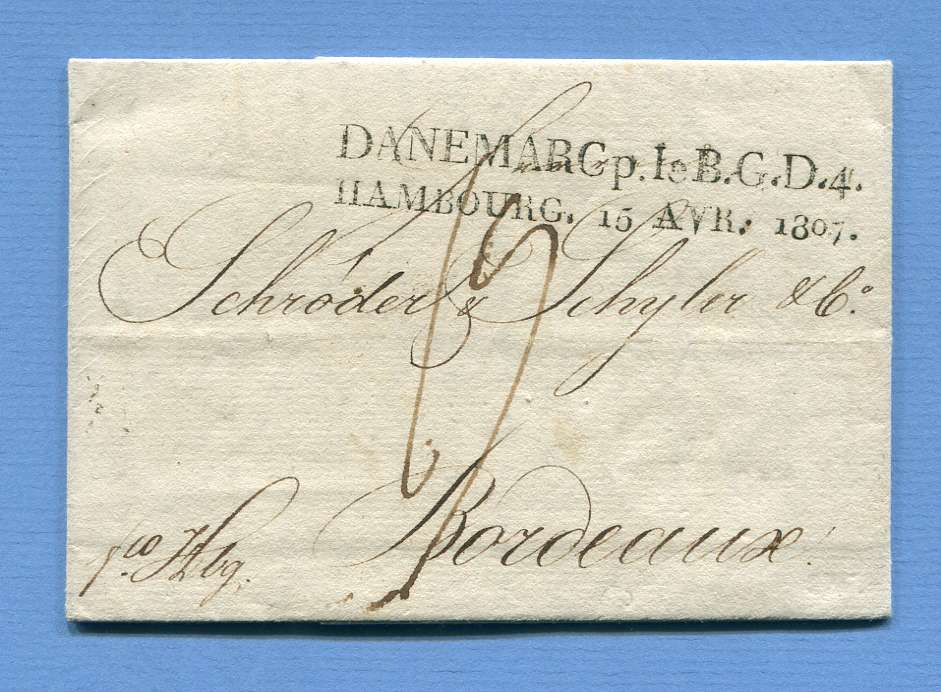 DANEMARC p. le B.G.D.4.
HAMBOURG. 15 AVR. 1807.
Schröder & Schyler & Co.
Bordeaux.
fco Hbg.